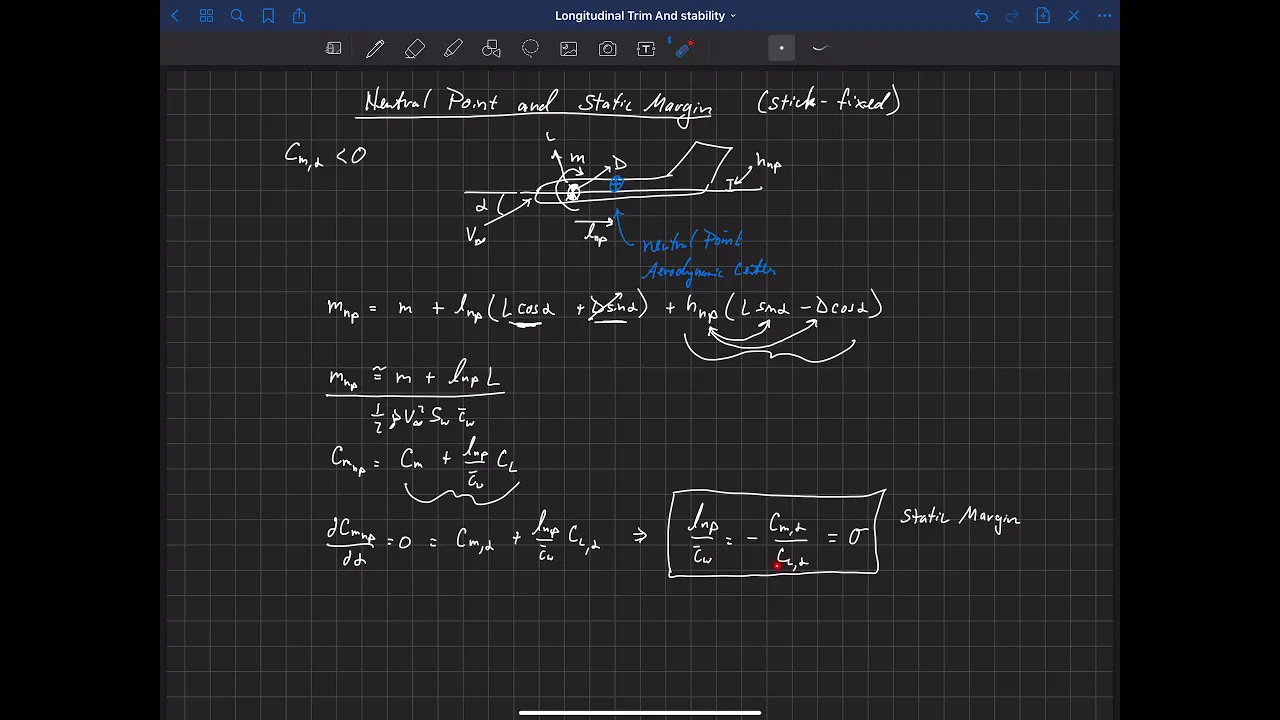 Longitudinal Trim And stability
Neutral Point and Static Margin (stick-fixed)
C_{m,α} < 0
L
m
D
h_{np}
α
V_∞
l_{np}
Neutral Point
Aerodynamic Center
m_{np} = m + l_{np}(L cosα + D sinα) + h_{np}(L sinα - D cosα)
m_{np} ≅ m + l_{np} L
½ ρ V_∞² S_w c̄_w
C_{m_{np}} = C_m + l_{np}/c̄_w C_L
dC_{m_{np}}/dα = 0 = C_{m,α} + l_{np}/c̄_w C_{L,α} ⇒ l_{np}/c̄_w = - C_{m,α}/C_{L,α} = σ Static Margin